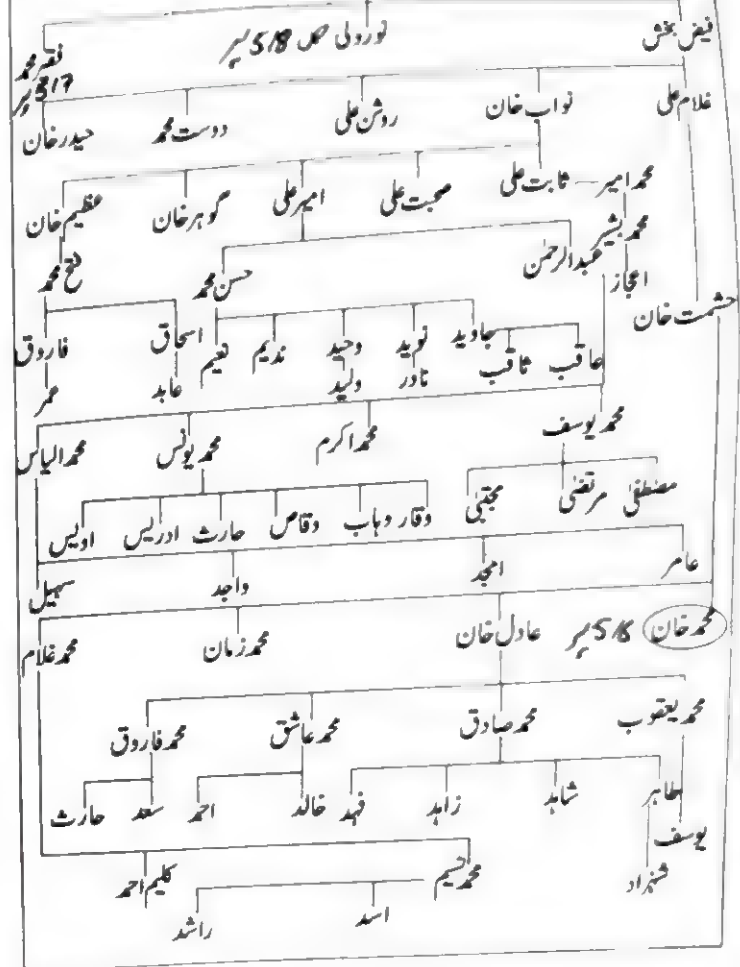 فیض بخش نور ولی ص 5/8 پر فقیر محمد
5/7 پر
غلام علی نواب خان روشن علی دوست محمد حیدر خان
محمد امیر ثابت علی صحبت علی امیر علی گوہر خان عظیم خان
محمد بشیر عبدالرحمٰن حسن محمد فتح محمد
اعجاز
حشمت خان
عاقب ثاقب جاوید نوید وحید ندیم نعیم اسحاق فاروق
نادر ولید عابد عمر
محمد یوسف محمد اکرم محمد یونس محمد الیاس
مصطفٰی مرتضٰی مجتبیٰ وقار وہاب وقاص حارث ادریس اویس
عامر امجد واجد سہیل
محمد خان 5/6 پر عادل خان محمد زمان محمد غلام
محمد یعقوب محمد صادق محمد عاشق محمد فاروق
طاہر شاہد زاہد فہد خالد احمد سعد حارث
یوسف
شہزاد محمد نسیم کلیم احمد
اسد راشد